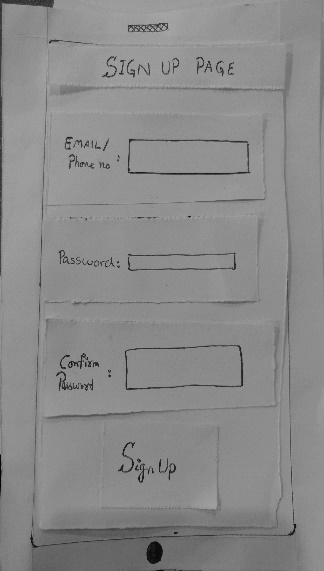 SIGN UP PAGE
EMAIL/
Phone no :
Password:
Confirm :
Password
Sign Up